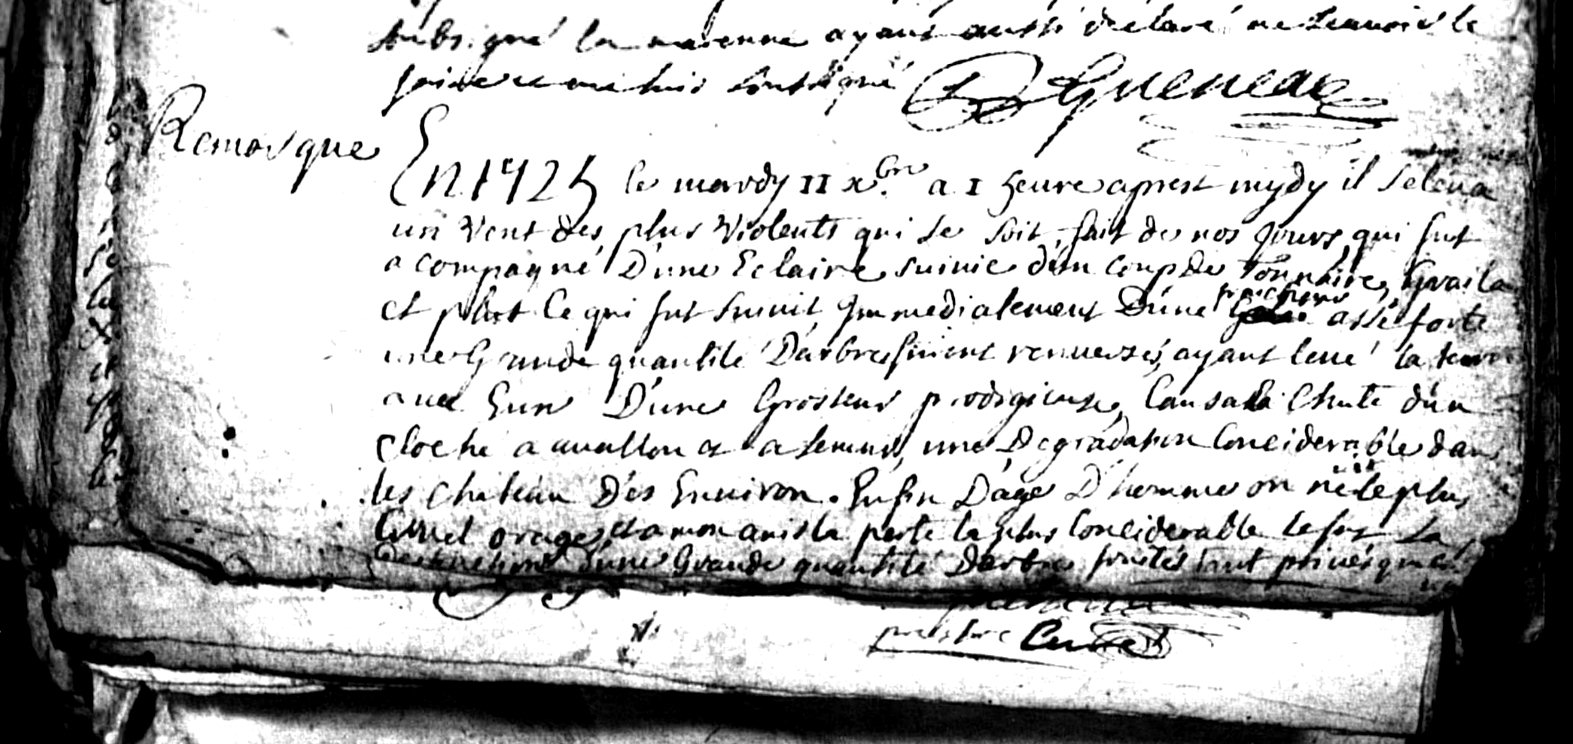 subsigné la marenne ayant aussi declaré ne scauoir le
faire ce que iay soussigné D Gueneau
Remarque
En 1725 le mardy 11 xbre a 1 heure aprest mydy il seleua
un vent des plus violents qui se soit fait de nos jours qui fut
acompagné D'une Eclaire suiuie d'un coup de Tonnaire, Graila
et plut Ce qui fut suiuit Jmmediatement D'une assé forte
une Grande quantité D'arbres furent renuersés, ayant leué la terre
auec Eux D'une Grosseur prodigieuse, Causa la Chute d'un
Cloché a auallon et a semur, une Degradation Conciderable dan
les chateau Dés Enuiron. Enfin D'age D'homme on n'a uüe le plus
Cruel orage, et a mon auis la perte la plus Conciderable ce fut La
Destruction d'une Grande quantité Darbres fruités tant priués que
prestre Curé